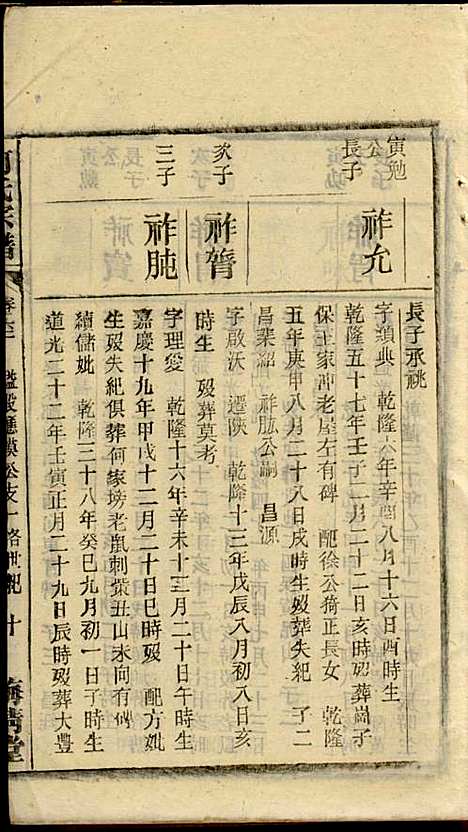 寅勉
公
長子
祚允
長子承祧
字頌典 乾隆六年辛酉八月十六日酉時生
乾隆五十七年壬子二月二十二日亥時歿葬崗子
保王家冲老屋左有碑 配徐公掎正長女 乾隆
五年庚申八月二十八日戌時生歿葬失紀 子二
昌棐紹 祚肱公嗣 昌源
次子
祚膂
字啟沃 遷陝 乾隆十三年戊辰八月初八日亥
時生 歿葬莫考
三子
祚肫
字理燮 乾隆十六年辛未十二月二十日午時生
嘉慶十九年甲戌十二月二十日巳時歿 配方妣
生歿失紀俱葬何家塝老鼠刺蓥丑山未向有碑
續儲妣 乾隆二十八年癸巳九月初一日子時生
道光二十二年壬寅正月二十九日辰時歿葬大豐
氏宗譜